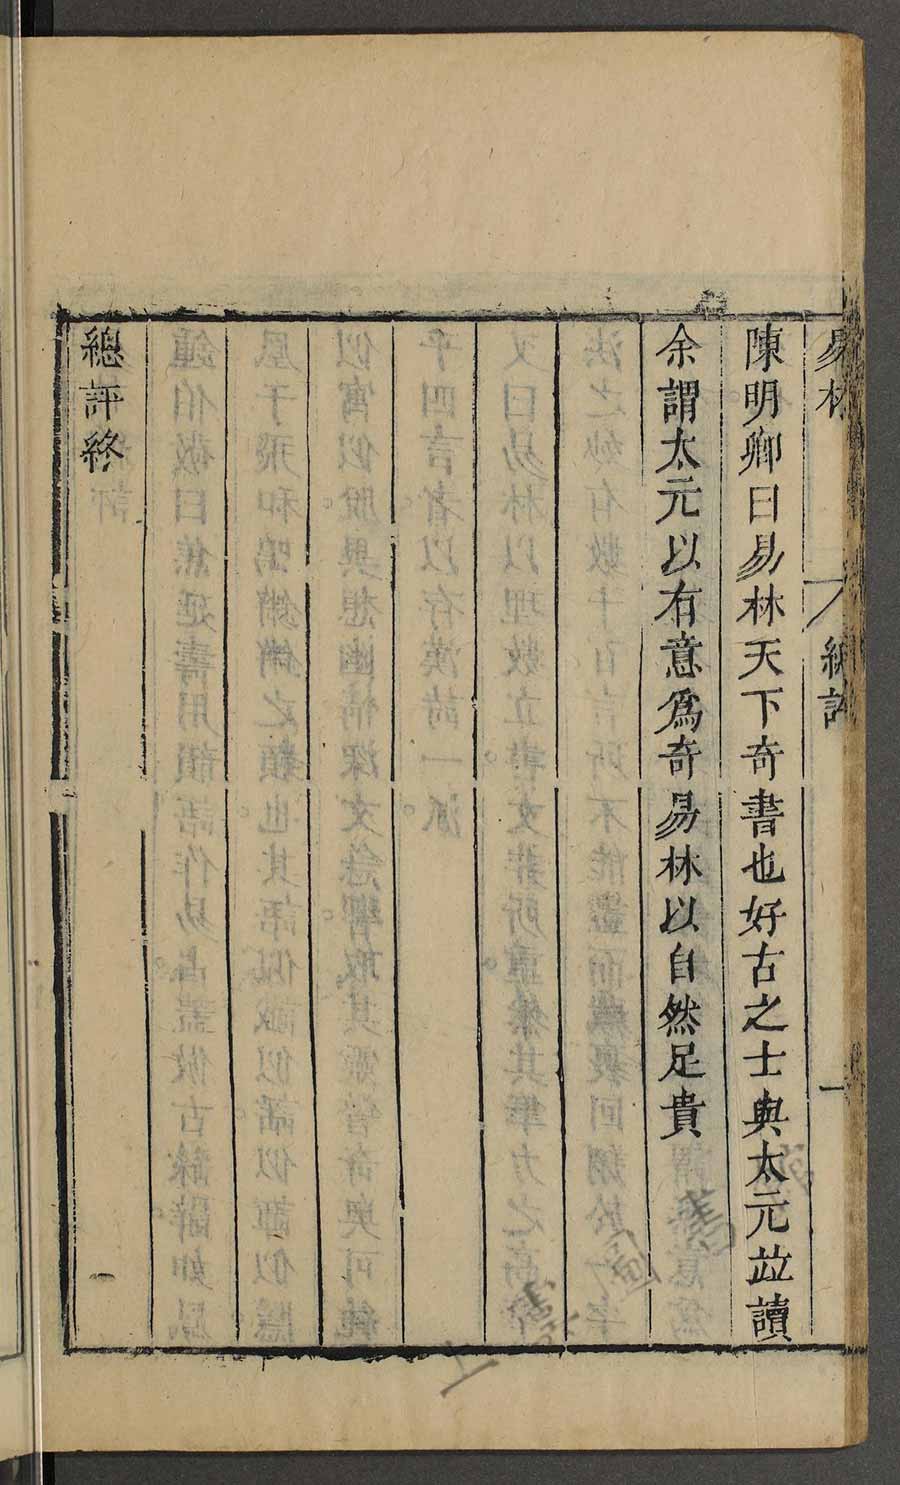 易林 總評 一
陳明卿曰易林天下奇書也好古之士與太元並讀
余謂太元以有意爲奇易林以自然足貴
總評終